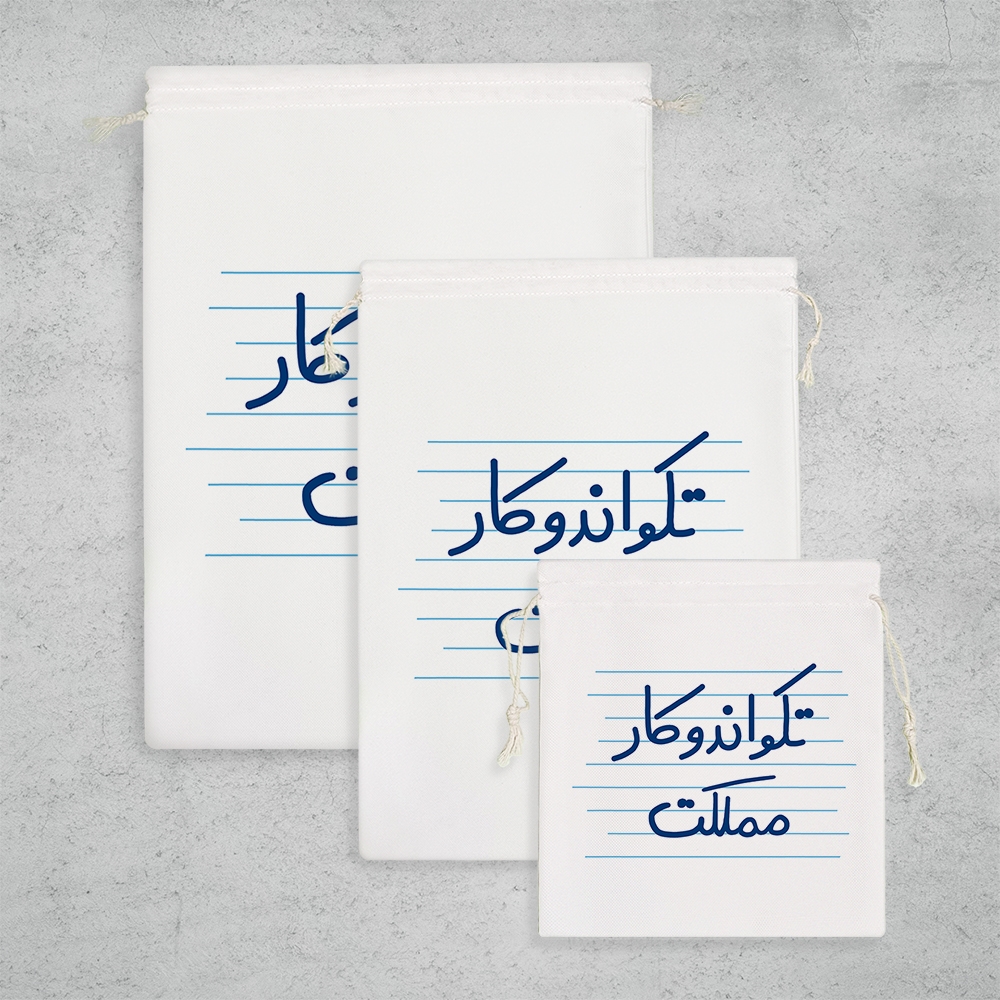 کار
ت
تکواندوکار
ت
تکواندوکار
مملکت